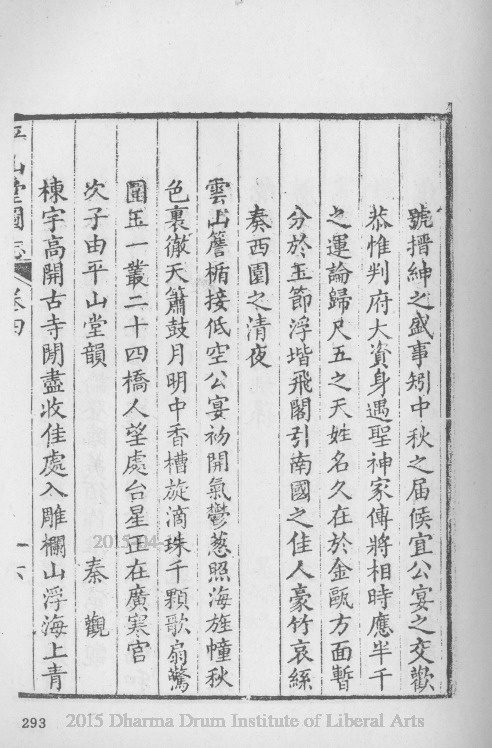 號搢紳之盛事矧中秋之届候宜公宴之交歡
恭惟判府大資身遇聖神家傳將相時應半千
之運論歸尺五之天姓名久在於金甌方面暫
分於玉節浮堦飛閣引南國之佳人豪竹哀絲
奏西園之清夜
雲出簷楯接低空公宴初開氣鬱葱照海旌幢秋
色裏徹天簫鼓月明中香槽旋滴珠千顆歌扇驚
圍玉一叢二十四橋人望處台星正在廣寒宮
次子由平山堂韻 秦觀
棟宇高開古寺閒盡收佳處入雕欄山浮海上青
平山堂圖志 卷四 一六
2015-04-
293 2015 Dharma Drum Institute of Liberal Arts